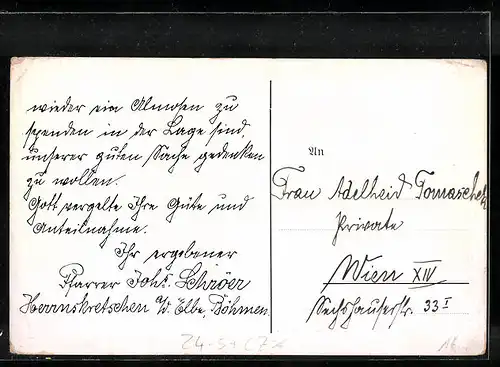 wieder ein Almosen zu
spenden in der Lage sind,
unserer guten Sache gedenken
zu wollen.
Gott vergelte Ihre Güte und
Anteilnahme.
Ihr ergebener
Pfarrer Johs. Schröer
Herrnskretschen a/d. Elbe, Böhmen.
An
Frau Adelheid Tomaschek
Private
Wien XIV
Sechshauserstr. 33 I